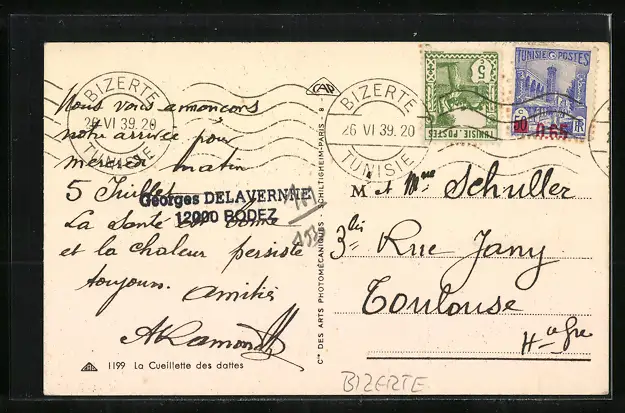 BIZERTE
26 VI 39. 20
TUNISIE
Nous vous annonçons
notre arrivée pour
mercredi matin
5 Juillet
La santé est bonne
et la chaleur persiste
toujours. Amitiés
Georges DELAVERNHE
12000 RODEZ
1199 La Cueillette des dattes
CAP
Cie DES ARTS PHOTOMÉCANIQUES
SCHILTIGHEIM-PARIS - 8
BIZERTE
26 VI 39. 20
TUNISIE
5c
TUNISIE POSTES
TUNISIE POSTES
0.65
M et Mme Schuller
3bis Rue Jany
Toulouse
Hte Gne
BIZERTE